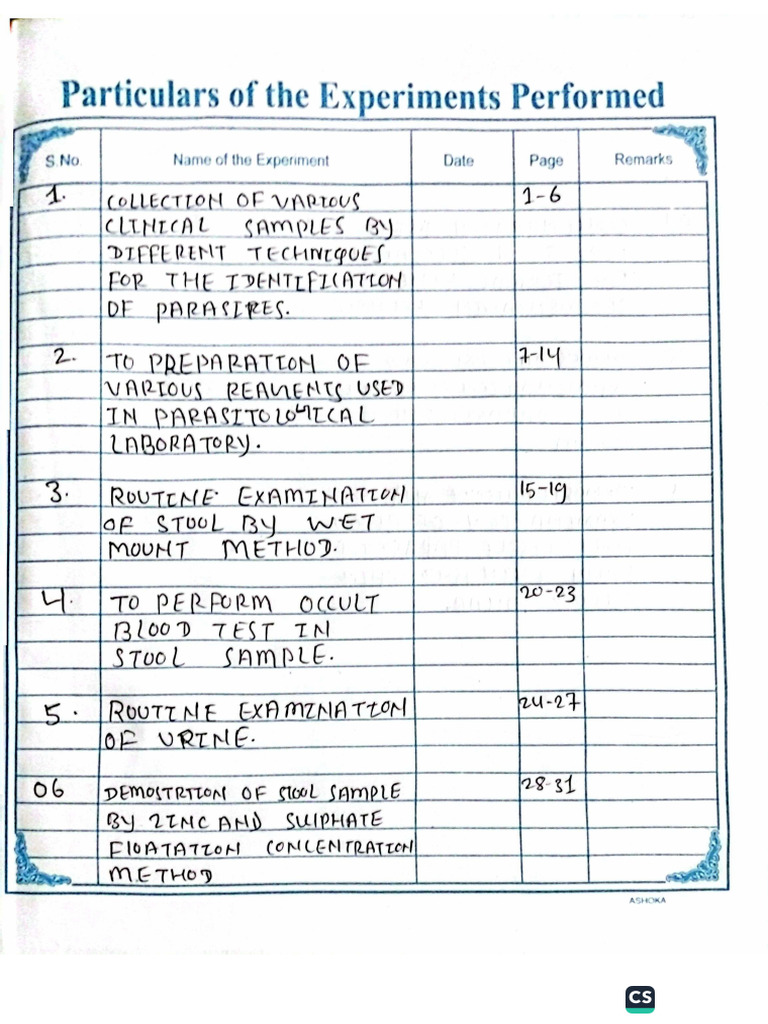 Particulars of the Experiments Performed
S.No. Name of the Experiment Date Page Remarks
1. COLLECTION OF VARIOUS 1-6
CLINICAL SAMPLES BY
DIFFERENT TECHNIQUES
FOR THE IDENTIFICATION
OF PARASIRES.
2. TO PREPARATION OF 7-14
VARIOUS REAGENTS USED
IN PARASITOLOGICAL
LABORATORY.
3. ROUTINE EXAMINATION 15-19
OF STOOL BY WET
MOUNT METHOD.
4. TO PERFORM OCCULT 20-23
BLOOD TEST IN
STOOL SAMPLE.
5. ROUTINE EXAMINATION 24-27
OF URINE.
06 DEMOSTRTION OF STOOL SAMPLE 28-31
BY ZINC AND SULPHATE
FLOATATION CONCENTRATION
METHOD
ASHOKA
CS